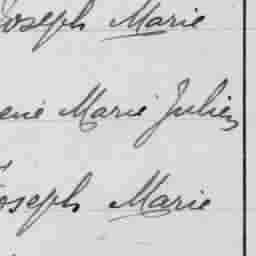 Joseph Marie
René Marie Julien
Joseph Marie